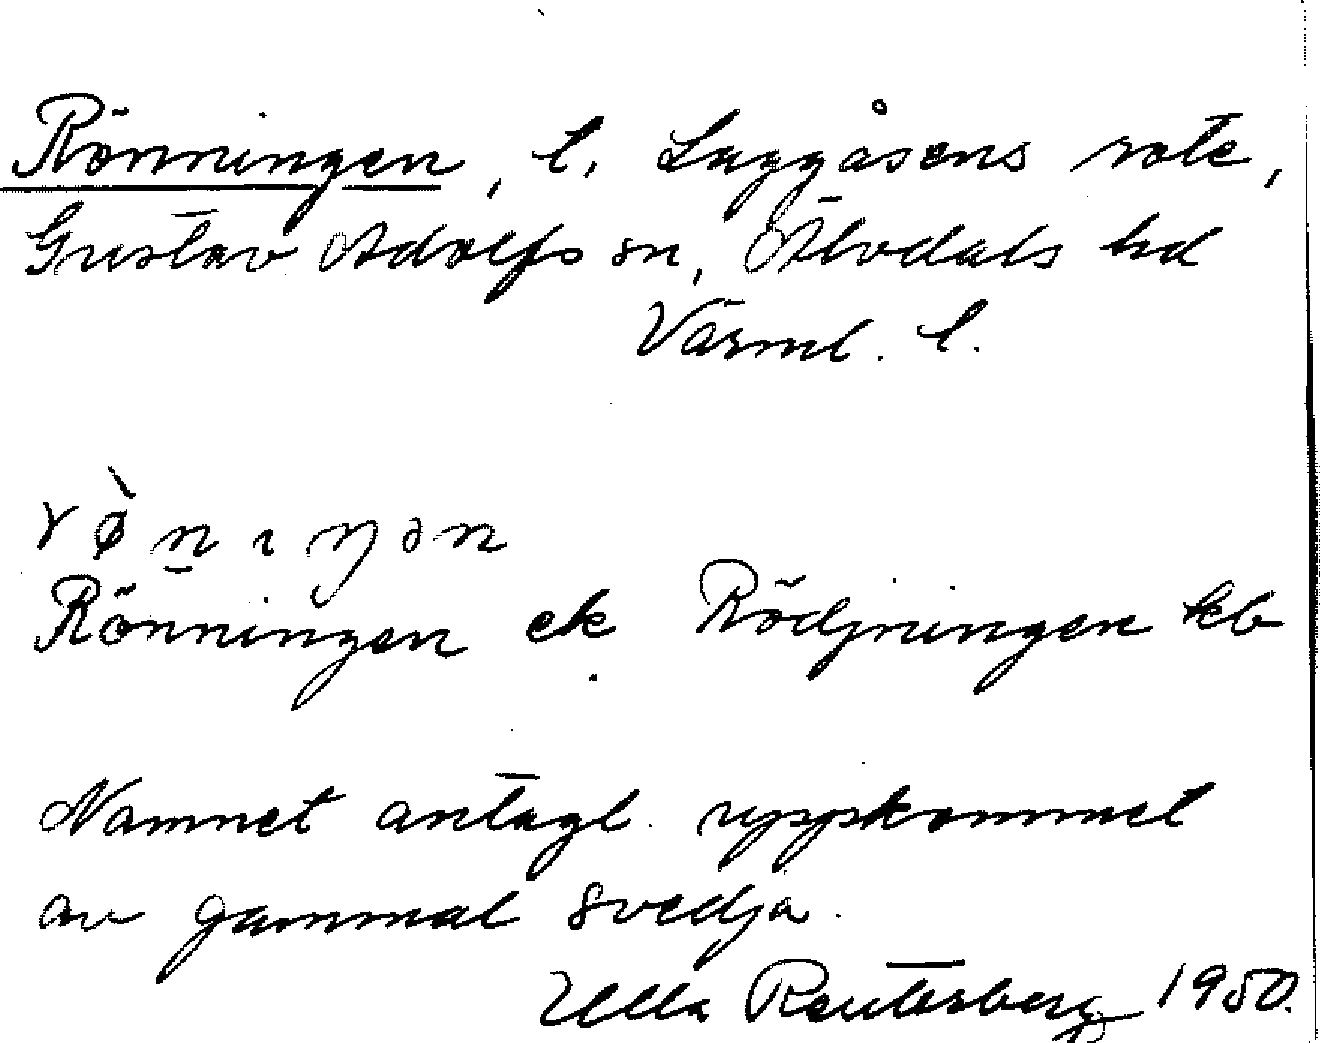 Rönningen, l. Laggåsens rote,
Gustav Adolfs sn, Älvdals hd
Värml. l.
rø̀n̲ıŋən
Rönningen ek Rödjningen kb
Namnet antagl. uppkommet
av gammal svedja.
Ulla Reutersberg 1950.